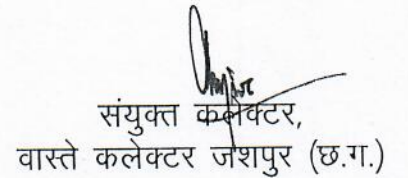 संयुक्त कलेक्टर,
वास्ते कलेक्टर जशपुर (छ.ग.)